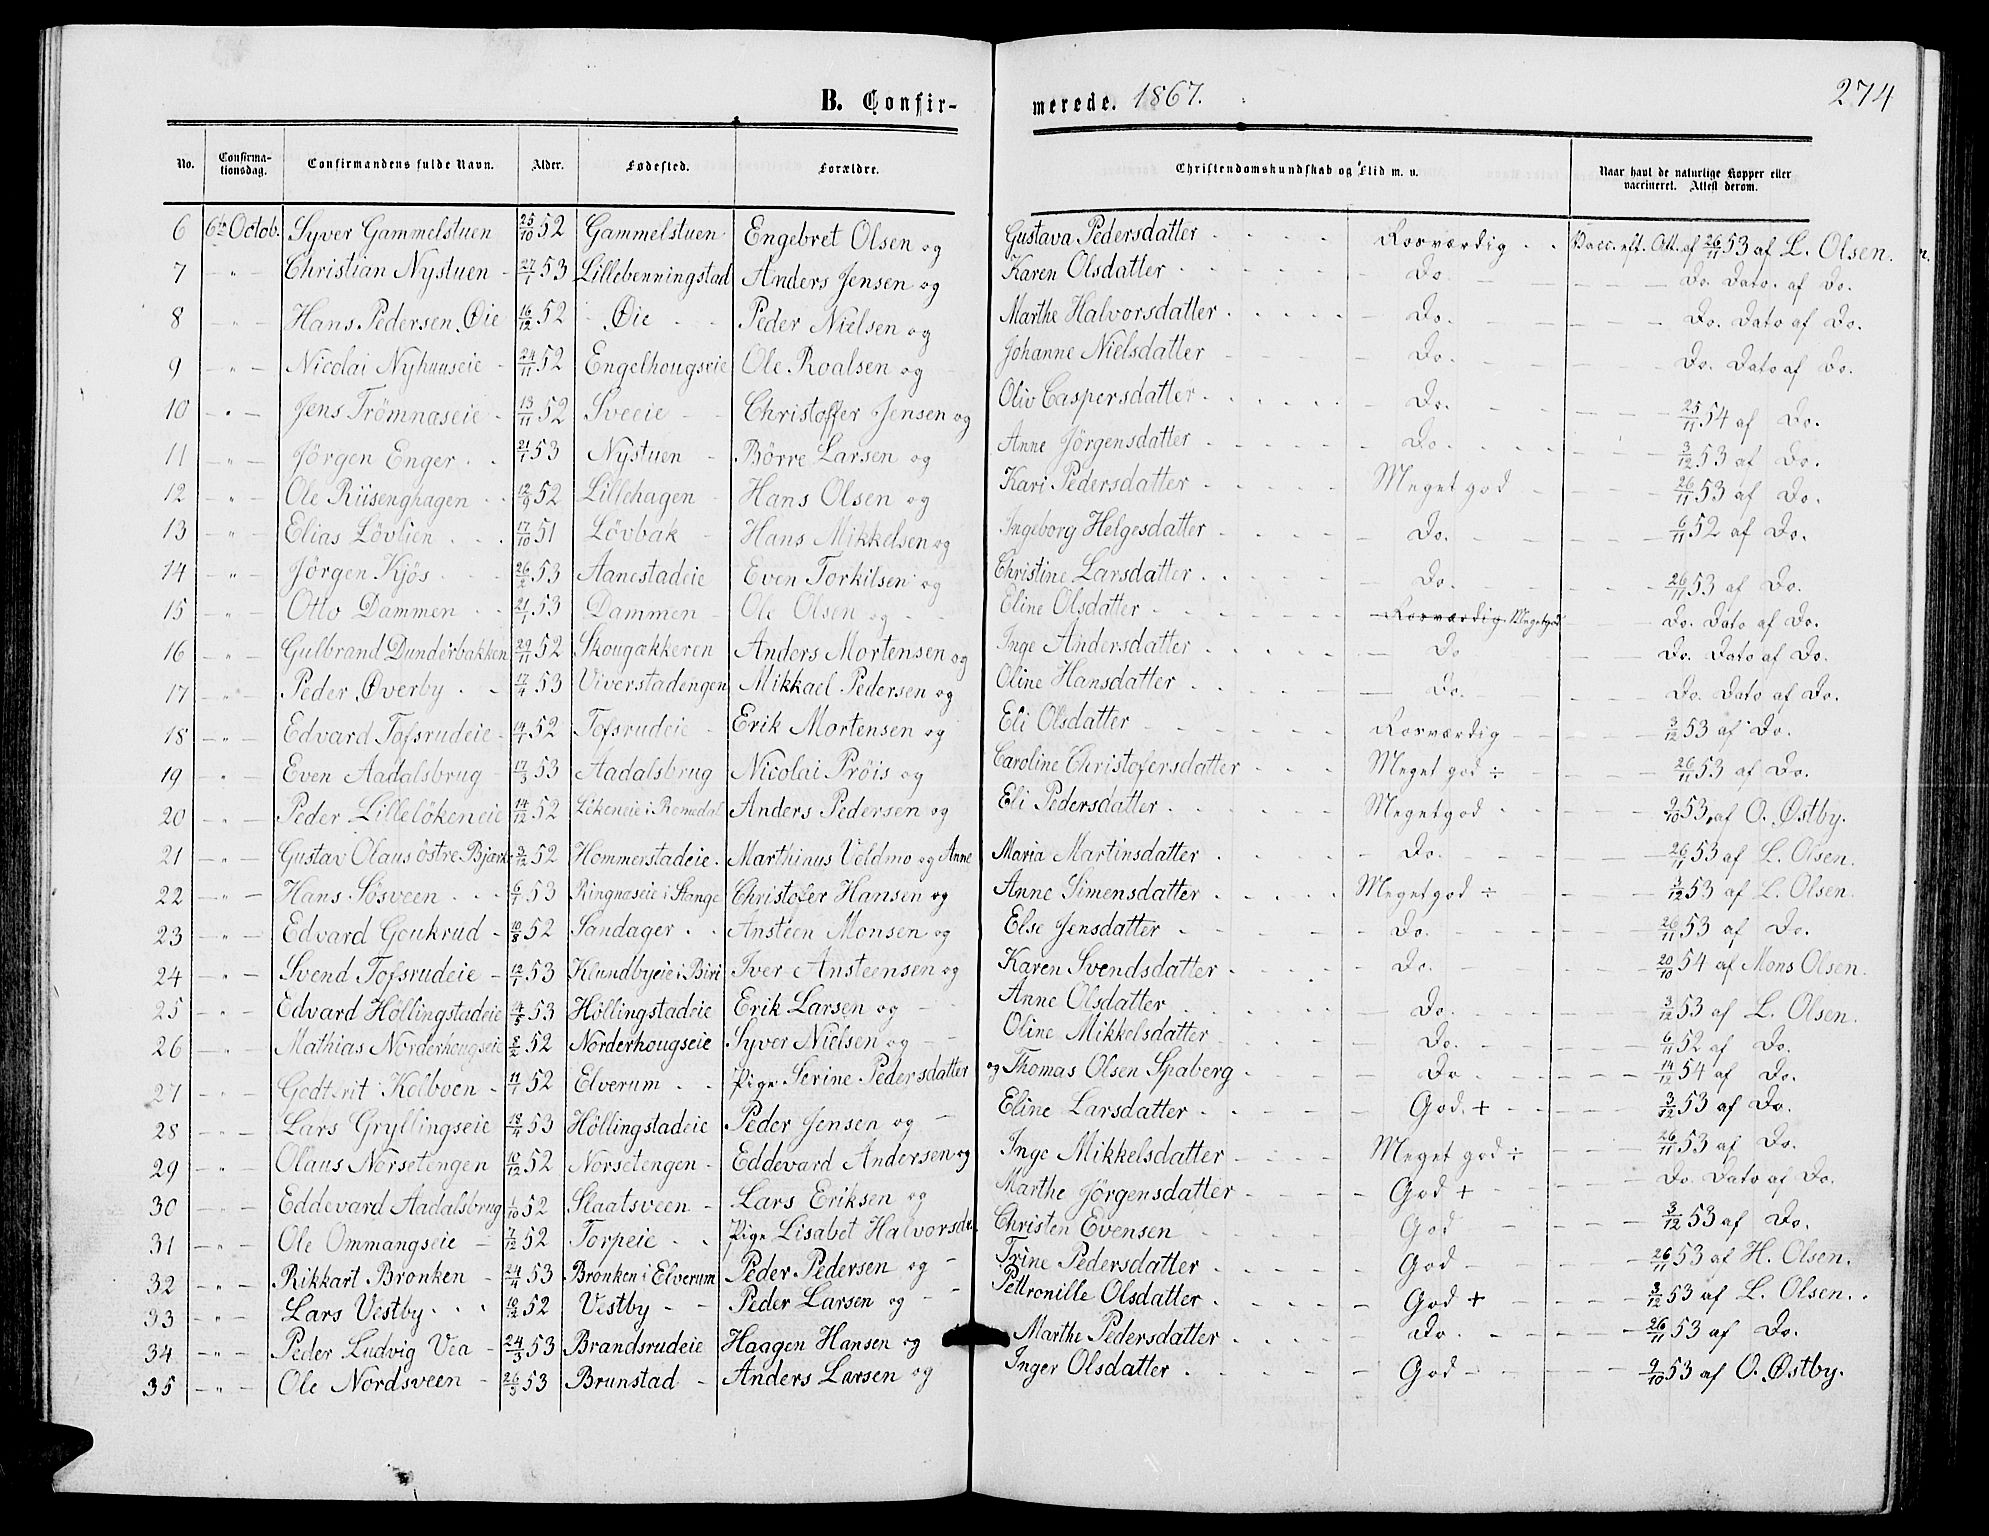 B. Confir- merede. 1867. 274
No. Confirma-tionsdag. Confirmandens fulde Navn. Alder. Fødested. Forældre. Christendomskundskab og Flid m. v. Naar havt de naturlige Kopper eller vaccineret. Attest derom.
6 6te Octob. Syver Gammelstuen 25/10 52 Gammelstuen Engebret Olsen og Gustava Pedersdatter Rosværdig Vacc. eft. Att. af 26/11 53 af L. Olsen.
7 " Christian Nystuen 27/1 53 Lillebenningstad Anders Jensen og Karen Olsdatter Do. Do. Dato. af Do.
8 " Hans Pedersen Øie 16/12 52 Øie Peder Nielsen og Marthe Halvorsdatter Do. Do. Dato af Do.
9 " Nicolai Nyhuuseie 24/11 52 Engelhougseie Ole Roalsen og Johanne Nielsdatter Do. Do. Dato af Do.
10 " Jens Trömnaseie 13/11 52 Sveeie Christoffer Jensen og Oliv Caspersdatter Do. 25/11 54 af Do.
11 " Jörgen Enger 21/1 53 Nystuen Börre Larsen og Anne Jörgensdatter Do. 3/12 53 af Do.
12 " Ole Riisenghagen 12/9 52 Lillehagen Hans Olsen og Kari Pedersdatter Meget god 26/11 53 af Do.
13 " Elias Lövlien 17/10 51 Lövbak Hans Mikkelsen og Ingeborg Helgesdatter Do. 6/11 52 af Do.
14 " Jörgen Kjös 26/2 53 Aanestadeie Even Torkilsen og Christine Larsdatter Do. 26/11 53 af Do.
15 " Otto Dammen 21/1 53 Dammen Ole Olsen og Eline Olsdatter Rosværdig. Megetgod Do. Dato af Do.
16 " Gulbrand Dunderbakken 29/11 52 Skougakkeren Anders Mortensen og Inge Andersdatter Do Do. Dato af Do.
17 " Peder Øverby 17/4 53 Viverstadengen Mikkael Pedersen og Oline Hansdatter Do. Do. Dato af Do.
18 " Edvard Tofsrudeie 14/1 52 Tofsrudeie Erik Mortensen og Eli Olsdatter Rosværdig 3/12 53 af Do.
19 " Even Aadalsbrug 17/3 53 Aadalsbrug Nicolai Pröis og Caroline Christofersdatter Meget god ÷ 26/11 53 af Do.
20 " Peder Lillelökeneie 14/12 52 Lökeneie i Romedal Anders Pedersen og Eli Pedersdatter Megetgod 9/10 53, af O. Østby.
21 " Gustav Olaus östre Bjørke 3/12 52 Hommerstadeie. Marthinus Veldmo og Anne Maria Martinsdatter Do. 26/11 53 af L. Olsen.
22 " Hans Sösveen 6/1 53 Ringnæseie i Stange Christofer Hansen og Anne Simensdatter Megetgod ÷ 3/12 53 af L. Olsen.
23 " Edvard Goukrud 10/8 52 Sandager Ansteen Monsen og Else Jensdatter Do. 26/11 53 af Do.
24 " Svend Tofsrudeie 12/1 53 Klundbyeie i Biri Iver Ansteensen og Karen Svendsdatter Do. 20/10 54 af Mons Olsen.
25 " Edvard Höllingstadeie 4/5 53 Höllingstadeie Erik Larsen og Anne Olsdatter Do. 3/12 53 af L. Olsen.
26 " Mathias Norderhougseie 8/2 52 Norderhougseie Syver Nielsen og Oline Mikkelsdatter Do. 6/11 52 af Do.
27 " Kolboen 11/1 52 Elverum Pige Serine Pedersdatter og Thomas Olsen Spaberg Do 14/12 54 af Do.
28 " Lars Gryllingseie 18/4 53 Höllingstadeie Peder Jensen og Eline Larsdatter God. + 3/12 53 af Do.
29 " Olaus Norsetengen 10/12 52 Norsetengen Eddevard Andersen og Inge Mikkelsdatter Meget god ÷ 26/11 53 af Do.
30 " Eddevard Aadalsbrug 1/10 52 Staatsveen Lars Eriksen og Marthe Jörgensdatter God + Do. Dato af Do.
31 " Ole Ommangseie 7/12 52 Torpeie Pige Lisabet Halvorsdr. Christen Evensen God 3/12 53 af Do.
32 " Rikkart Bronken 24/4 53 Bronken i Elverum Peder Pedersen og Trine Pedersdatter God 26/11 53 af H. Olsen.
33 " Lars Vestby 10/2 52 Vestby Peder Larsen og Pettronille Olsdatter God + 3/12 53 af L. Olsen.
34 " Peder Ludvig Vea 24/3 53 Brandsrudeie Haagen Hansen og Marthe Pedersdatter Do. 26/11 53 af Do.
35 " Ole Nordsveen 26/3 53 Brunstad Anders Larsen og Inger Olsdatter God 9/10 53 af O. Østby.